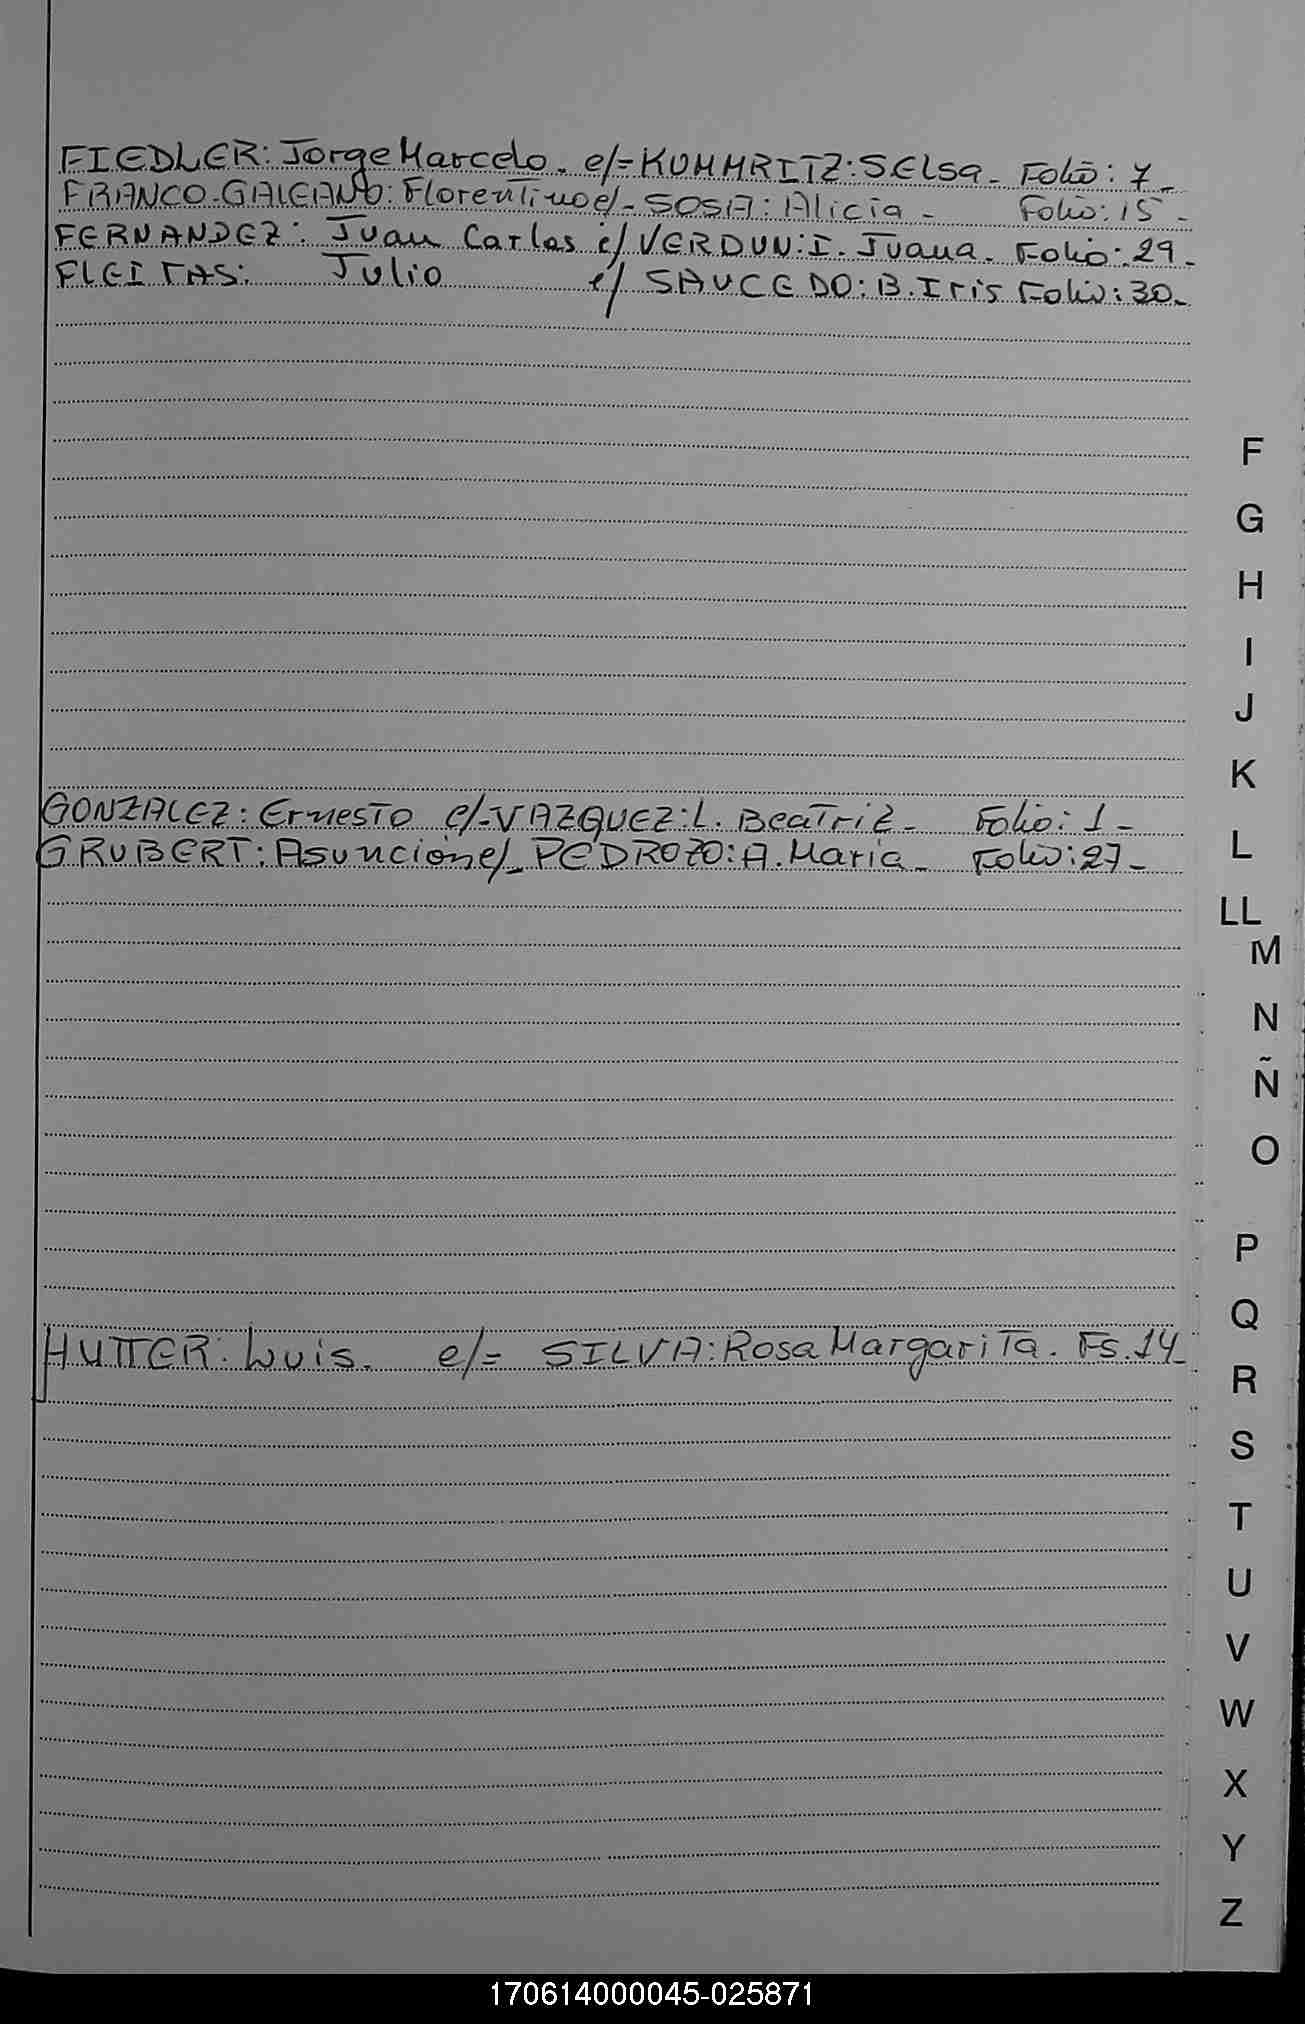 FIEDLER: Jorge Marcelo. e/= KUMMRITZ: SELSA. Folio: 7_
FRANCO-GALEANO: Florentino e/- SOSA: Alicia - Folio: 15-
FERNANDEZ: Juan Carlos e/ VERDUN: I. Juana. Folio: 29-
FLEITAS: Julio e/ SAUCEDO: B. Iris Folio: 30-
F
G
H
I
J
K
GONZALEZ: Ernesto e/- VAZQUEZ: L. Beatriz - Folio: 1-
GRUBERT: Asuncion e/- PEDROZO: A. Maria - Folio: 27-
L
LL
M
N
Ñ
O
P
Q
HUTTER: Luis. e/= SILVA: Rosa Margarita. Fs. 14-
R
S
T
U
V
W
X
Y
Z
170614000045-025871